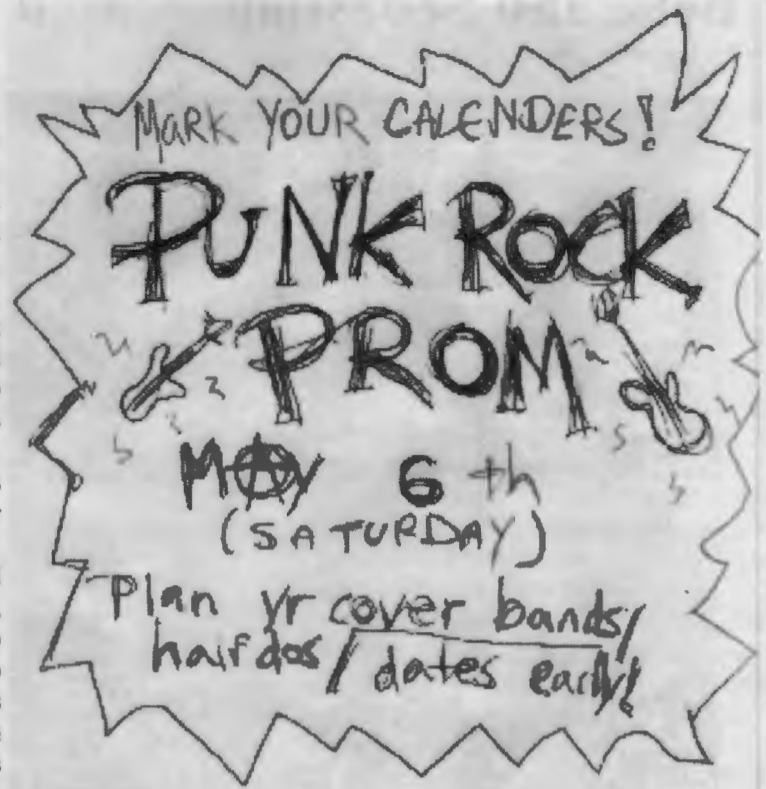 MARK YOUR CALENDERS!
PUNK ROCK
PROM
MAY 6th
(SATURDAY)
Plan yr cover bands/
hairdos / dates early!